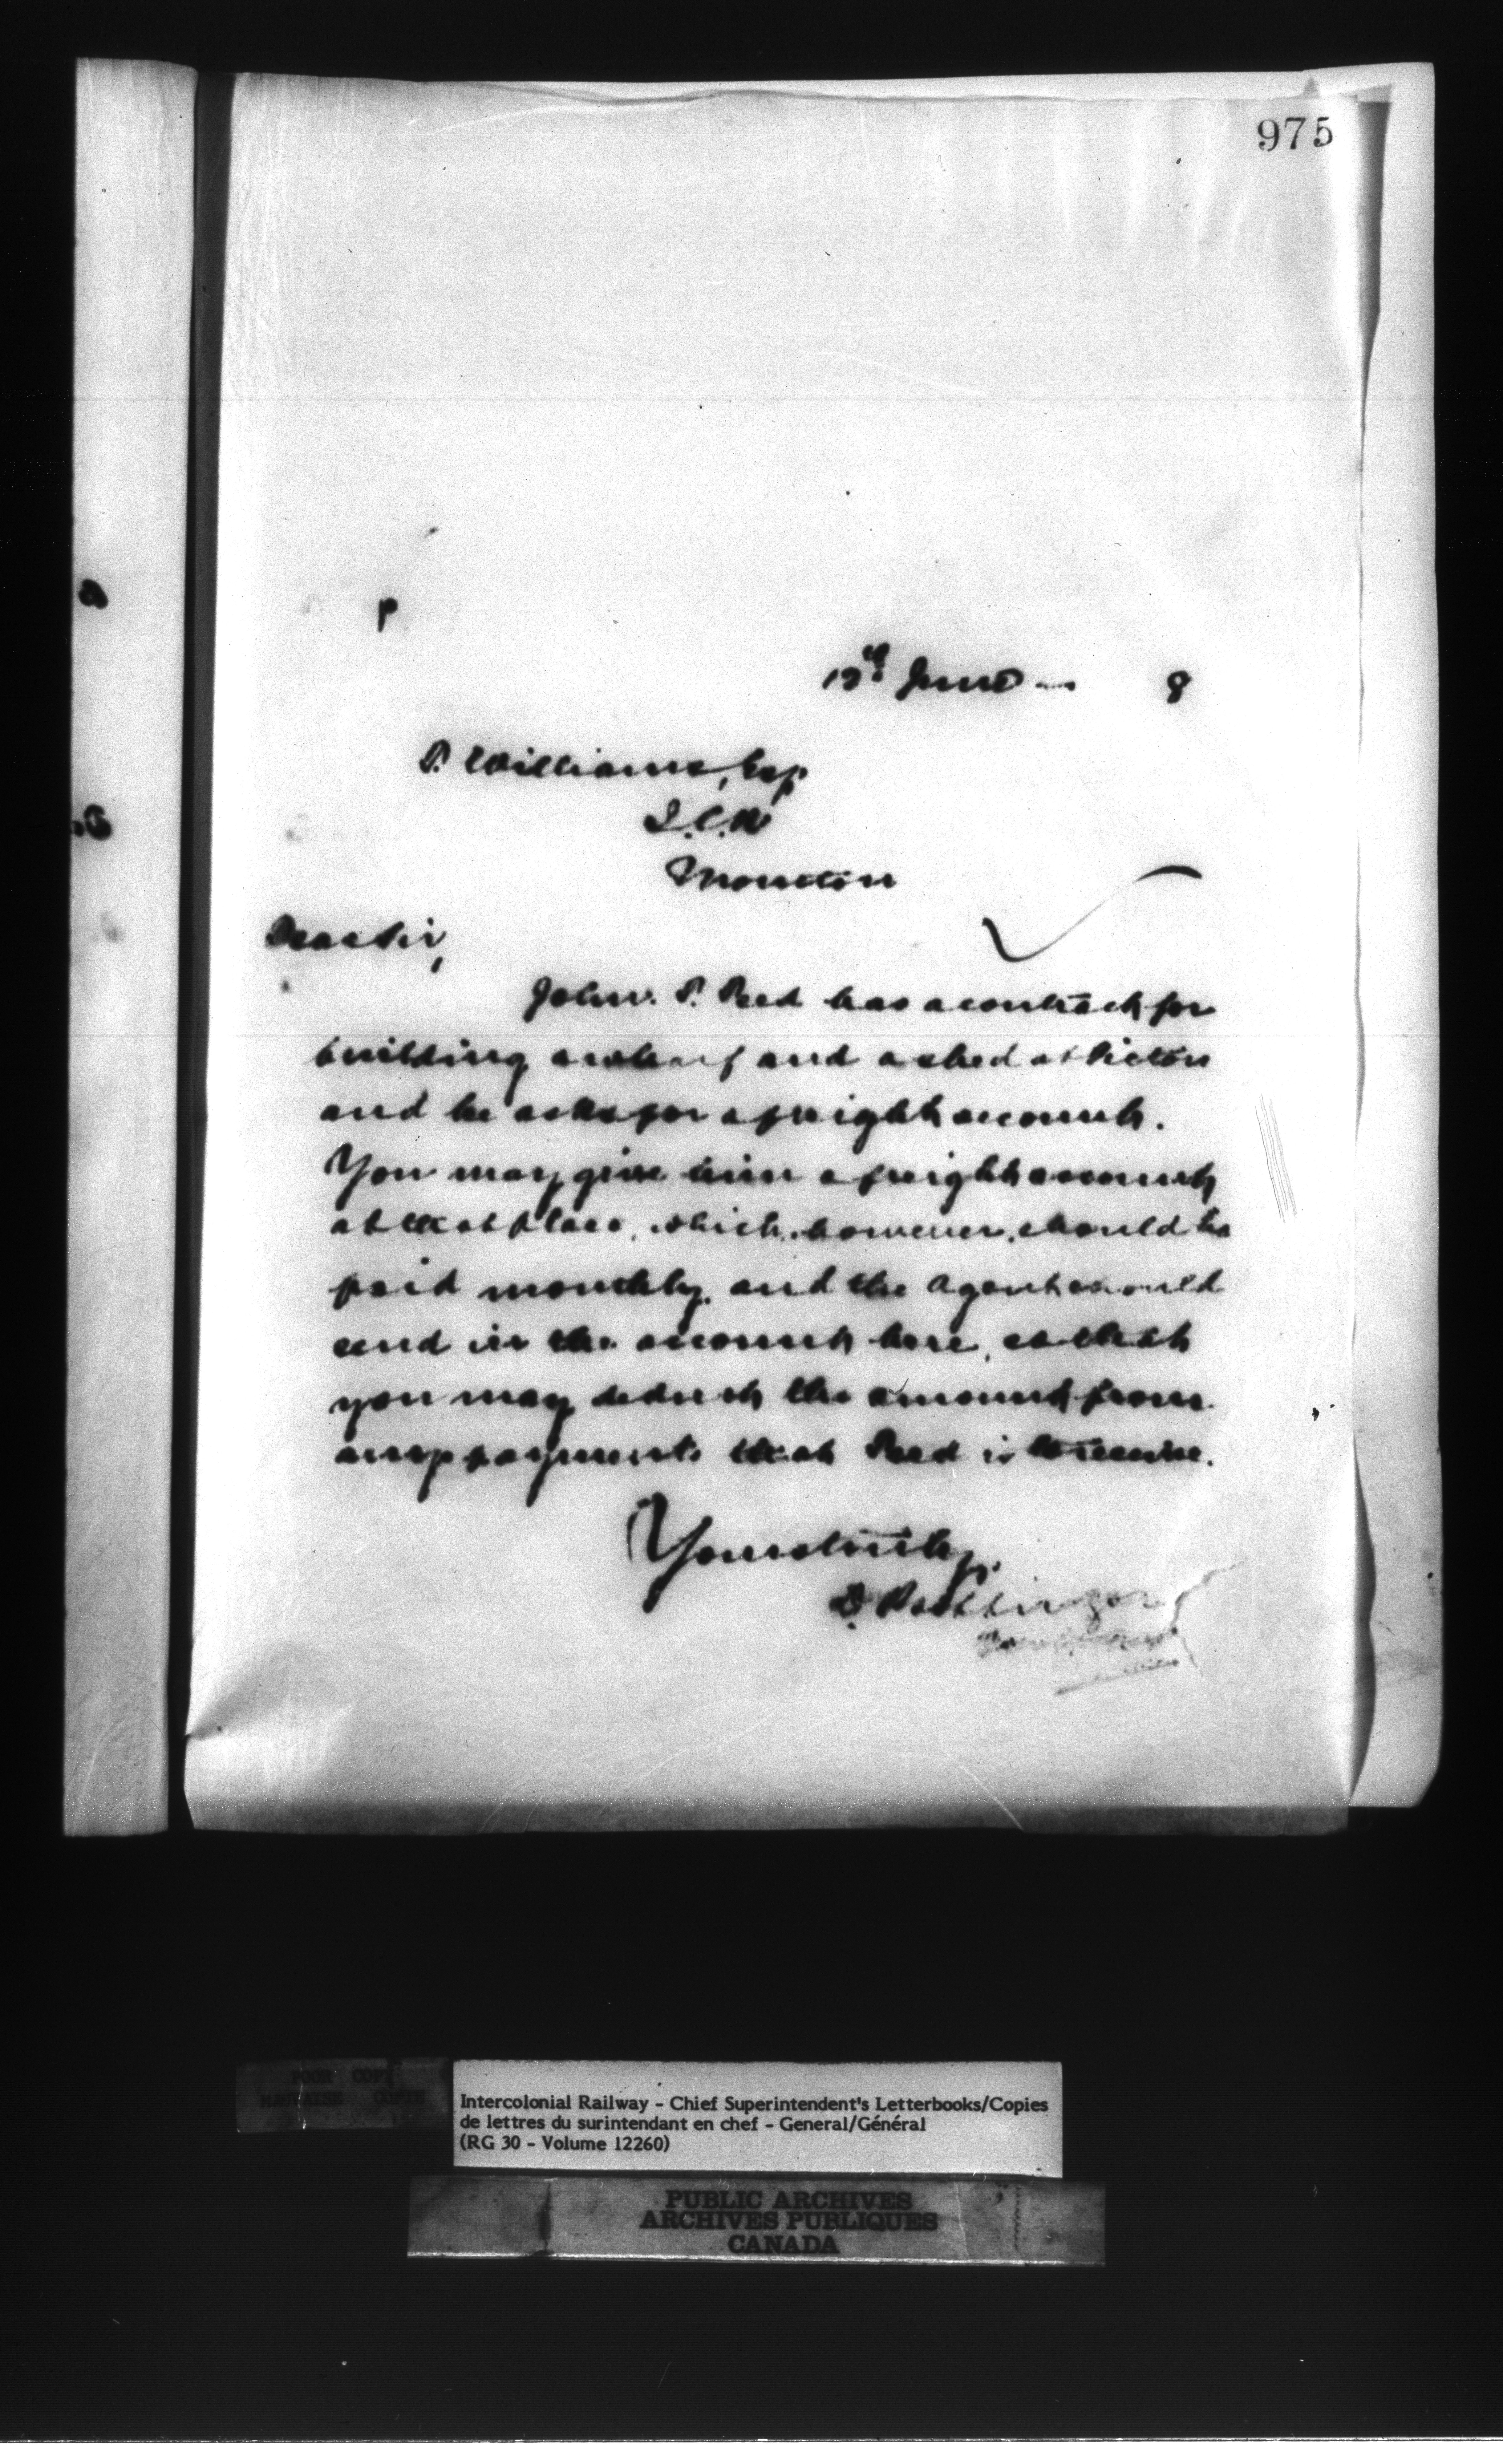 975
P
June 8
P. Williams, Esq
Moncton
Dear Sir,
John. P. Reed has a contract for
building a wharf and a shed at Pictou
and he asks for a freight account.
You may give him a freight account
at that place, which, however, should be
paid monthly, and the Agent should
send in the account here, so that
you may deduct the amount from
any payments that Reed is to receive.
Yours truly,
D. Pottinger
POOR COPY
MAUVAISE COPIE
Intercolonial Railway - Chief Superintendent's Letterbooks/Copies
de lettres du surintendant en chef - General/Général
(RG 30 - Volume 12260)
PUBLIC ARCHIVES
ARCHIVES PUBLIQUES
CANADA